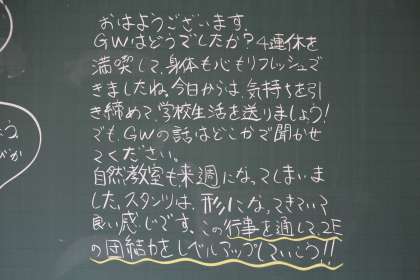 おはようございます。
GWはどうでしたか？4連休を
満喫して、身体も心もリフレッシュで
きましたね。今日からは、気持ちを引
き締めて、学校生活を送りましょう！
でも、GWの話はどこかで聞かせ
てください。
自然教室も来週になってしまいま
した。スタンツは、形になってきていて
良い感じです。この行事を通して、2E
の団結力をレベルアップしていこう!!